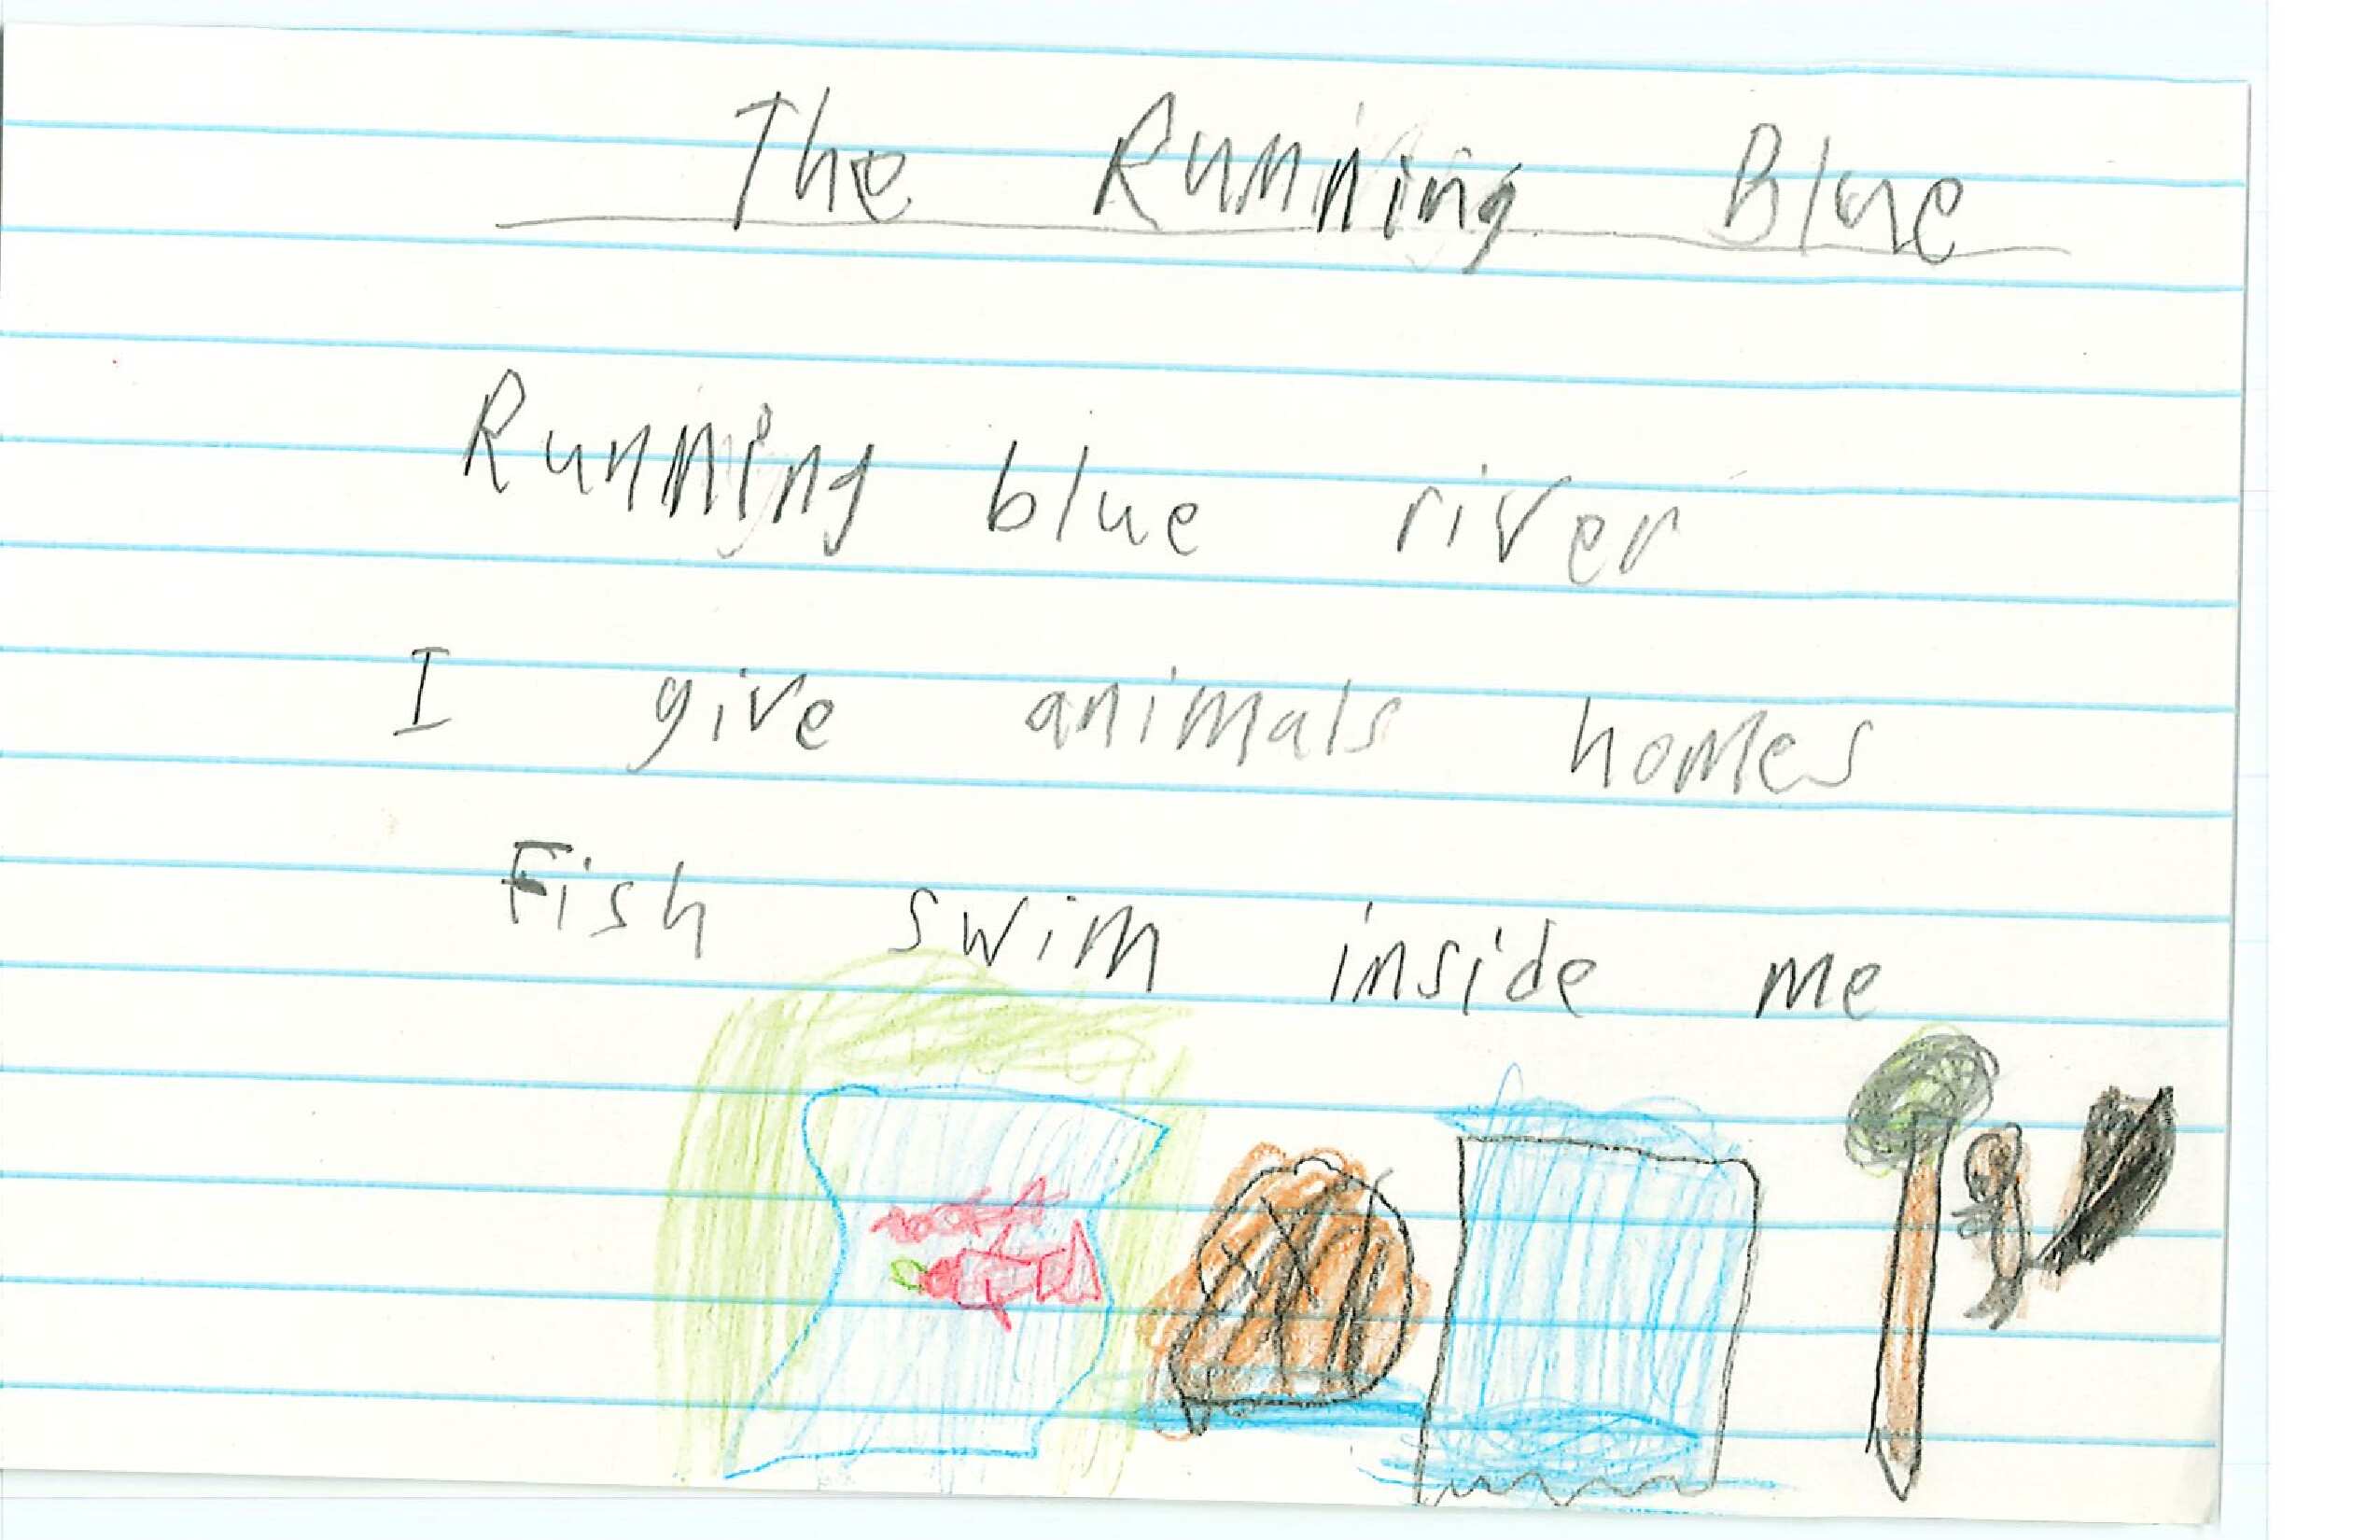 The Running Blue
Running blue river
I give animals homes
Fish swim inside me